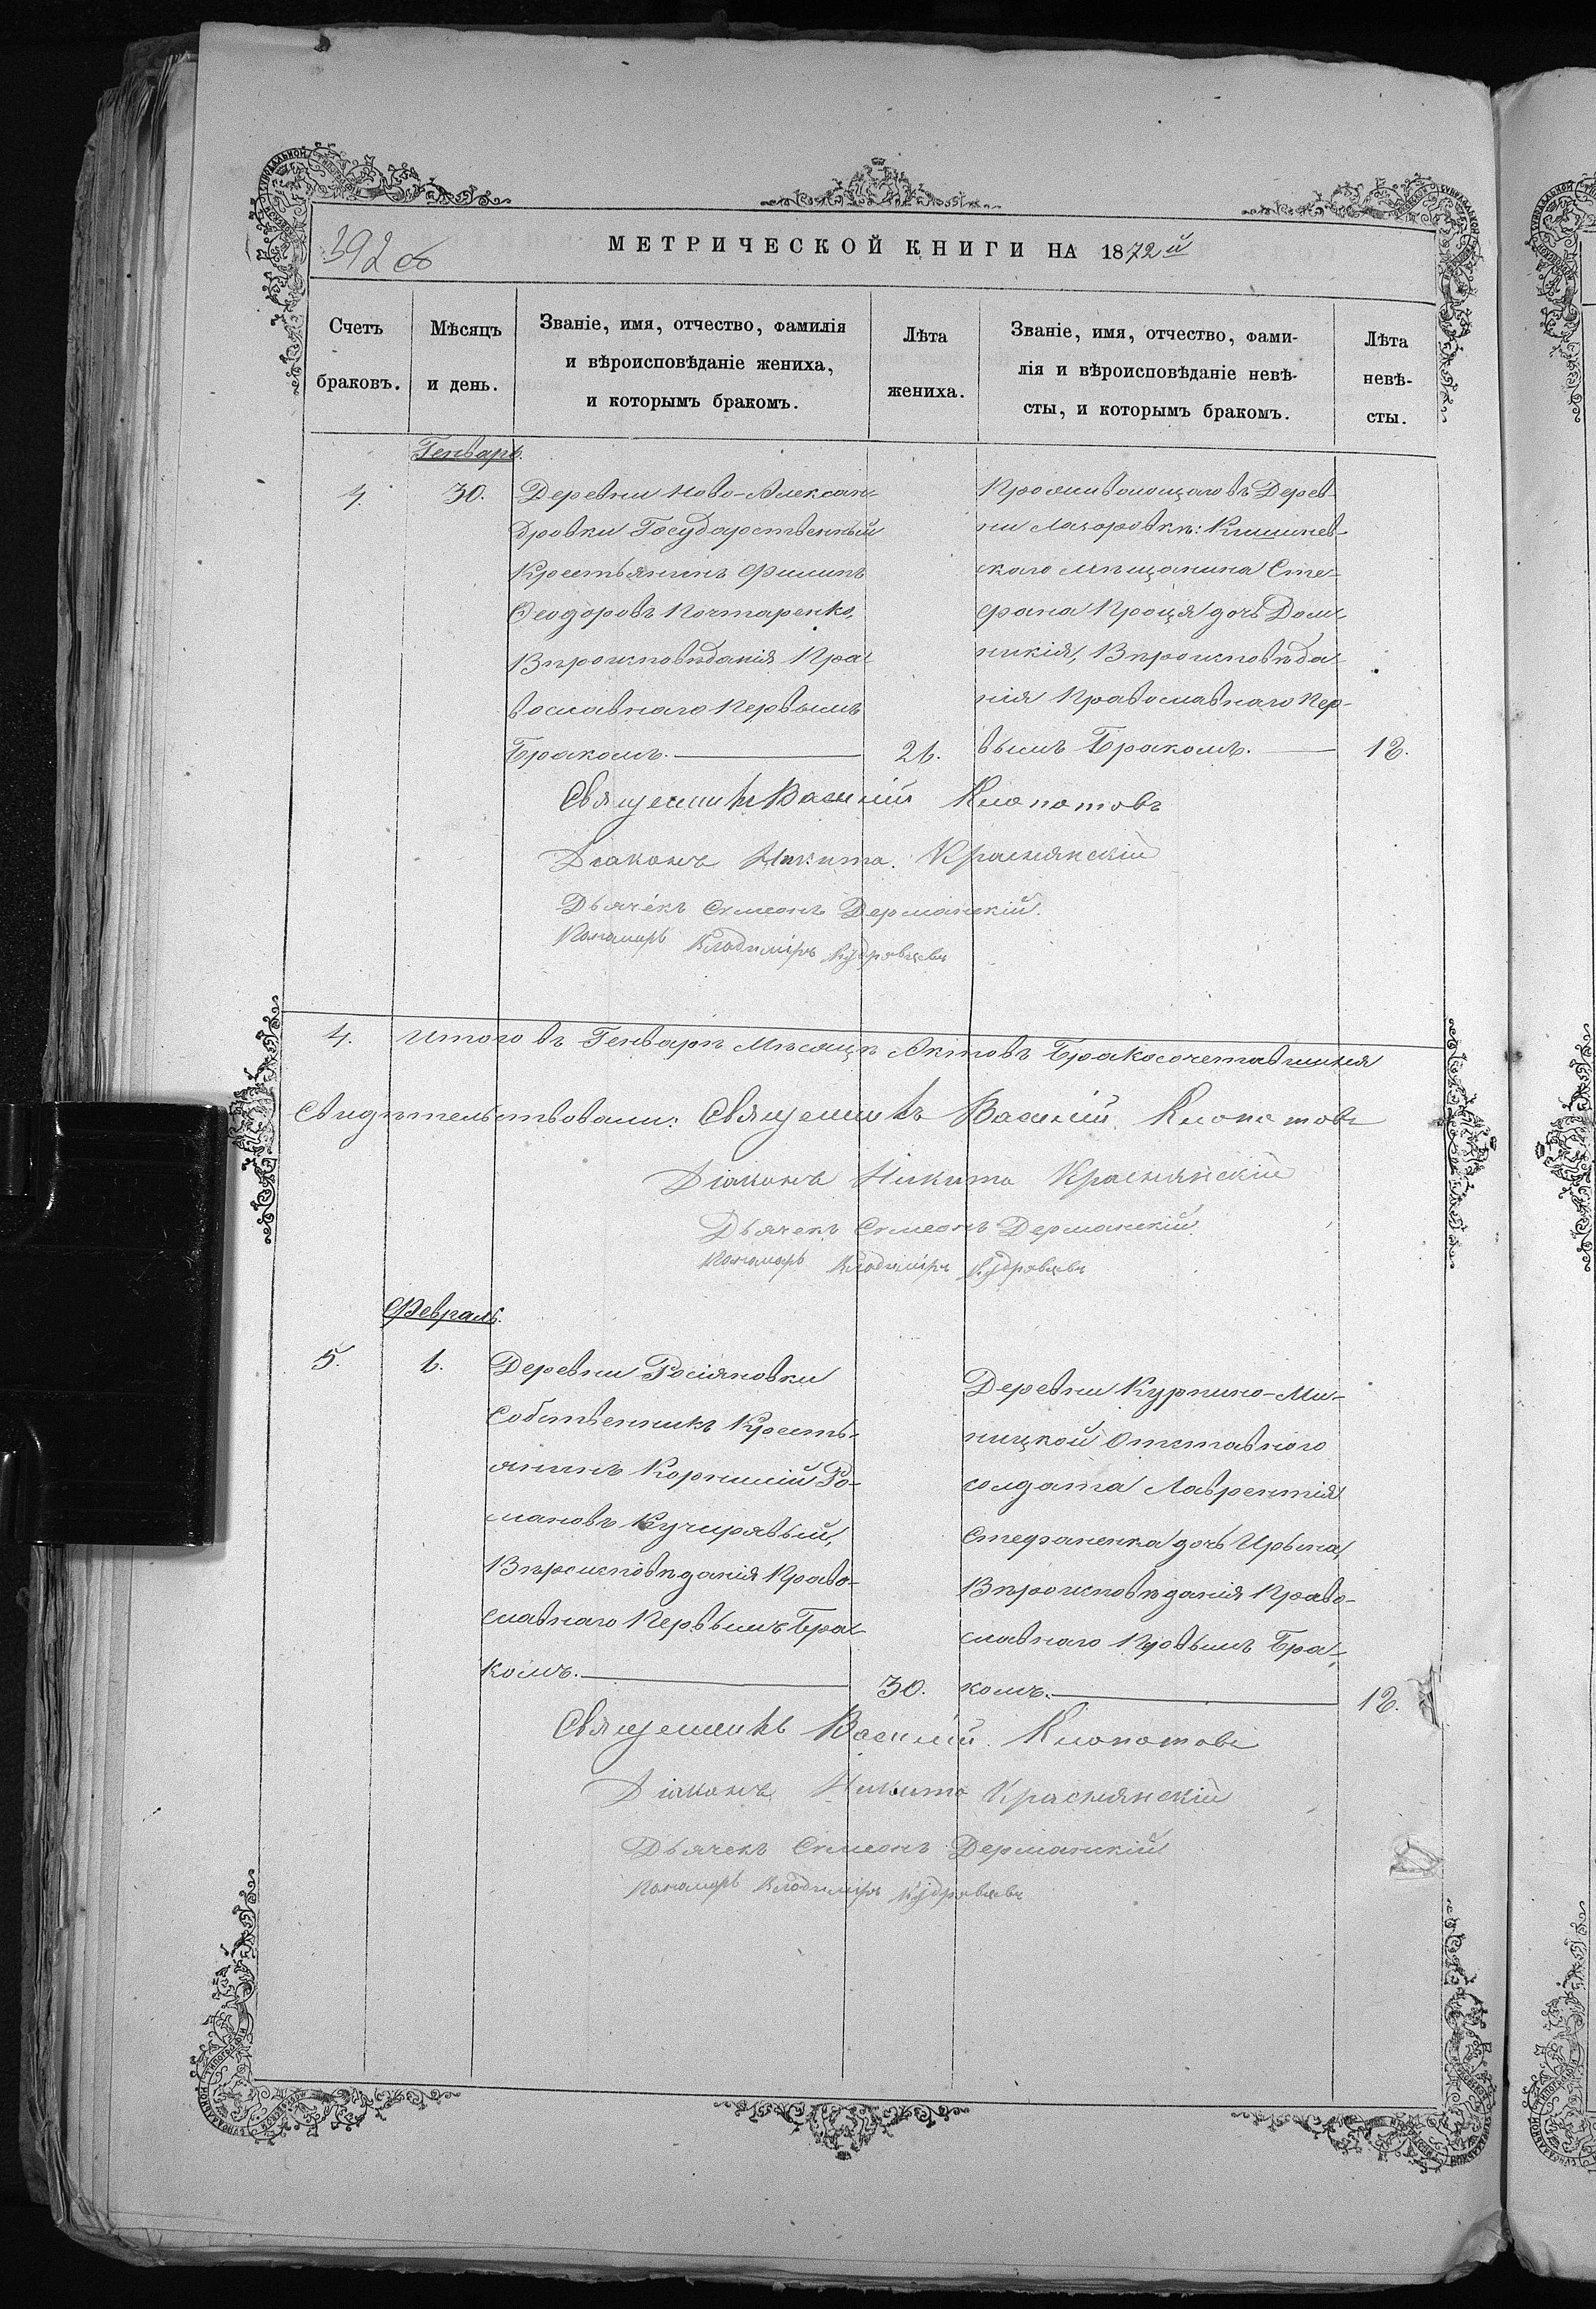 392 об
МЕТРИЧЕСКОЙ КНИГИ НА 1872й
Счетъ
браковъ.
Мѣсяцъ
и день.
Званіе, имя, отчество, фамилія
и вѣроисповѣданіе жениха,
и которымъ бракомъ.
Лѣта
жениха.
Званіе, имя, отчество, фами-
лія и вѣроисповѣданіе невѣ-
сты, и которымъ бракомъ.
Лѣта
невѣ-
сты.
Генварь.
4.
30.
Деревни Ново-Алексан-
дровки Государственный
Крестьянинъ Филипъ
Феодоровъ Почтаренко,
Вѣроисповѣданія Пра-
вославнаго Первымъ
Бракомъ.
21.
Проживающаго въ Дерев-
ни Лазоровкѣ: Кишинев-
скаго мѣщанина Сте-
фана Проця дочь Дом-
никія, Вѣроисповѣда-
нія Православнаго Пер-
вымъ Бракомъ.
18.
Священникъ Василій Клопотовъ
Діаконъ Никита Краснянскій
Дьячекъ Симеонъ Дерманскій.
Пономарь Владиміръ Кудрявцевъ
4. Итого въ Генварѣ Мѣсяцѣ Актовъ Бракосочетавшихся
Свидѣтельствовали: Священникъ Василій Клопотовъ
Діаконъ Никита Краснянскій
Дьячекъ Симеонъ Дерманскій
Пономарь Владиміръ Кудрявцевъ
Февраль.
5.
1.
Деревни Росіяновки
Собственникъ Кресть-
янинъ Корнилій Ро-
мановъ Кучирявый,
Вѣроисповѣданія Право-
славнаго Первымъ Бра-
комъ.
30.
Деревни Курпино-Ми-
ницкой Отставного
солдата Лаврентія
Стефаненка дочь Ирына,
Вѣроисповѣданія Право-
славнаго Первымъ Бра-
комъ.
18.
Священникъ Василій Клопотовъ
Діаконъ Никита Краснянскій
Дьячекъ Симеонъ Дерманскій
Пономарь Владиміръ Кудрявцевъ